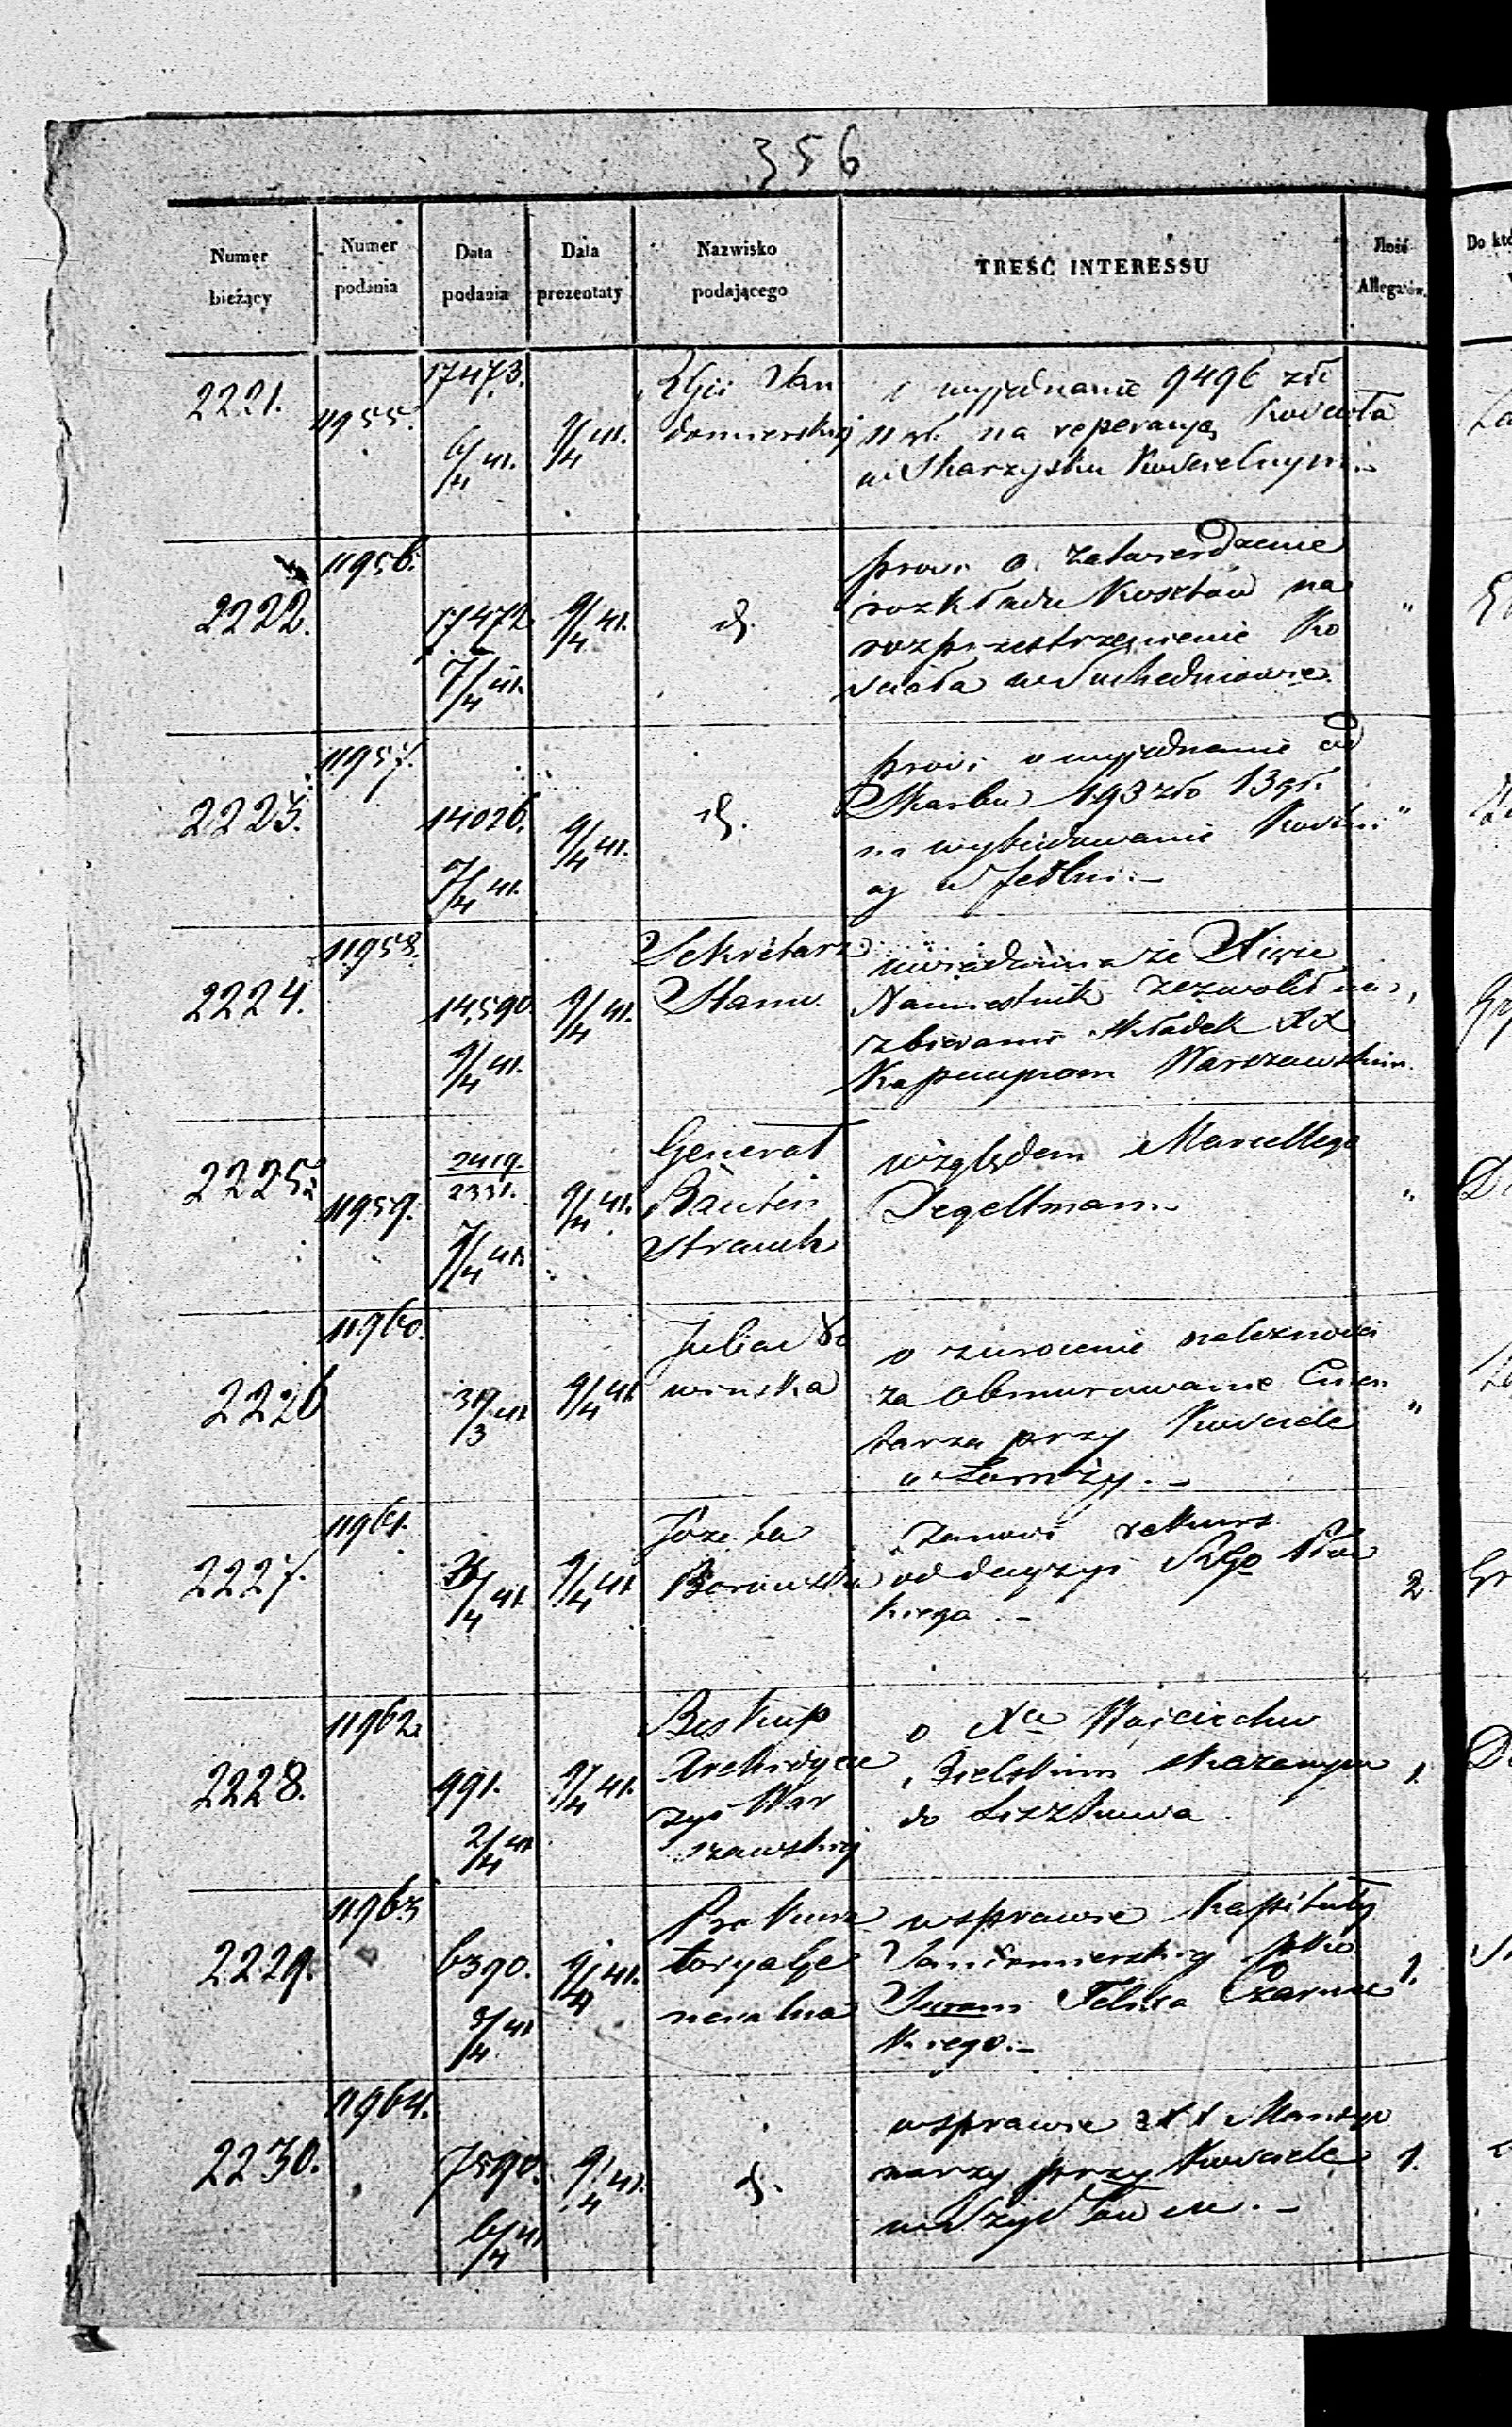 356
Numer bieżący
Numer podania
Data podania
Data prezentaty
Nazwisko podającego
TREŚĆ INTERESSU
Ilość Allegatów.
Do któ
2221.
11955.
17473.
6/4 41.
9/4 41.
domierskiej
o wyjednanie 9496 złł
11 gr. na reperacyę Kościoła
w Skarzysku Kościelnym.
2222.
11956.
17472
7/4 41.
9/4 41.
d.
prosi o zatwierdzenie
rozkładu Kosztów na
rozprzestrzenienie Ko
ścioła w Suchedniowie.
"
2223.
11957.
14026.
7/4 41.
9/4 41.
d.
prosi o wyjednanie od
Skarbu 193 zło 13 gr.
na wybudowanie
w Jedlni.–
"
2224.
11958.
14,590.
9/4 41.
9/4 41.
Sekretarz
Stanu
uwiadamia że Xiąże
Namiestnik zezwolił na
zbieranie składek XX
Kapucynom Warszawskim.
2225.
11959.
2419.
2331.
7/4 41.
9/4 41.
Generał
Strauch
względem Marcellego
Degeltmann
"
2226
11960.
/3 41
9/4 41
Julian
winska
o zwrocenie należności
za obmurowanie Cmen
tarza przy Kościele
w Łomży.–
"
2227.
11961.
/4 41.
9/4 41
Józefa
Borowska
zanosi rekurs
od decyzyi
kiego.–
2
2228.
11962.
991.
2/4 41
9/4 41.
Biskup
Archidyece
zyi War
szawskiej
o Xu Wojciechu
Bielskim skazanym
do
1.
2229.
11963
6390.
/4 41
9/4 41.
Prokura
torya Ge
neralna
w sprawie Kapituły
Sandomierskiej pko
Surom Felixa Czarnec
kiego.–
1.
2230.
11964.
7590.
6/4 41
9/4 41.
d.
w sprawie XX Mansyo
narzy przy Kościele
w Szydłowcu.–
1.